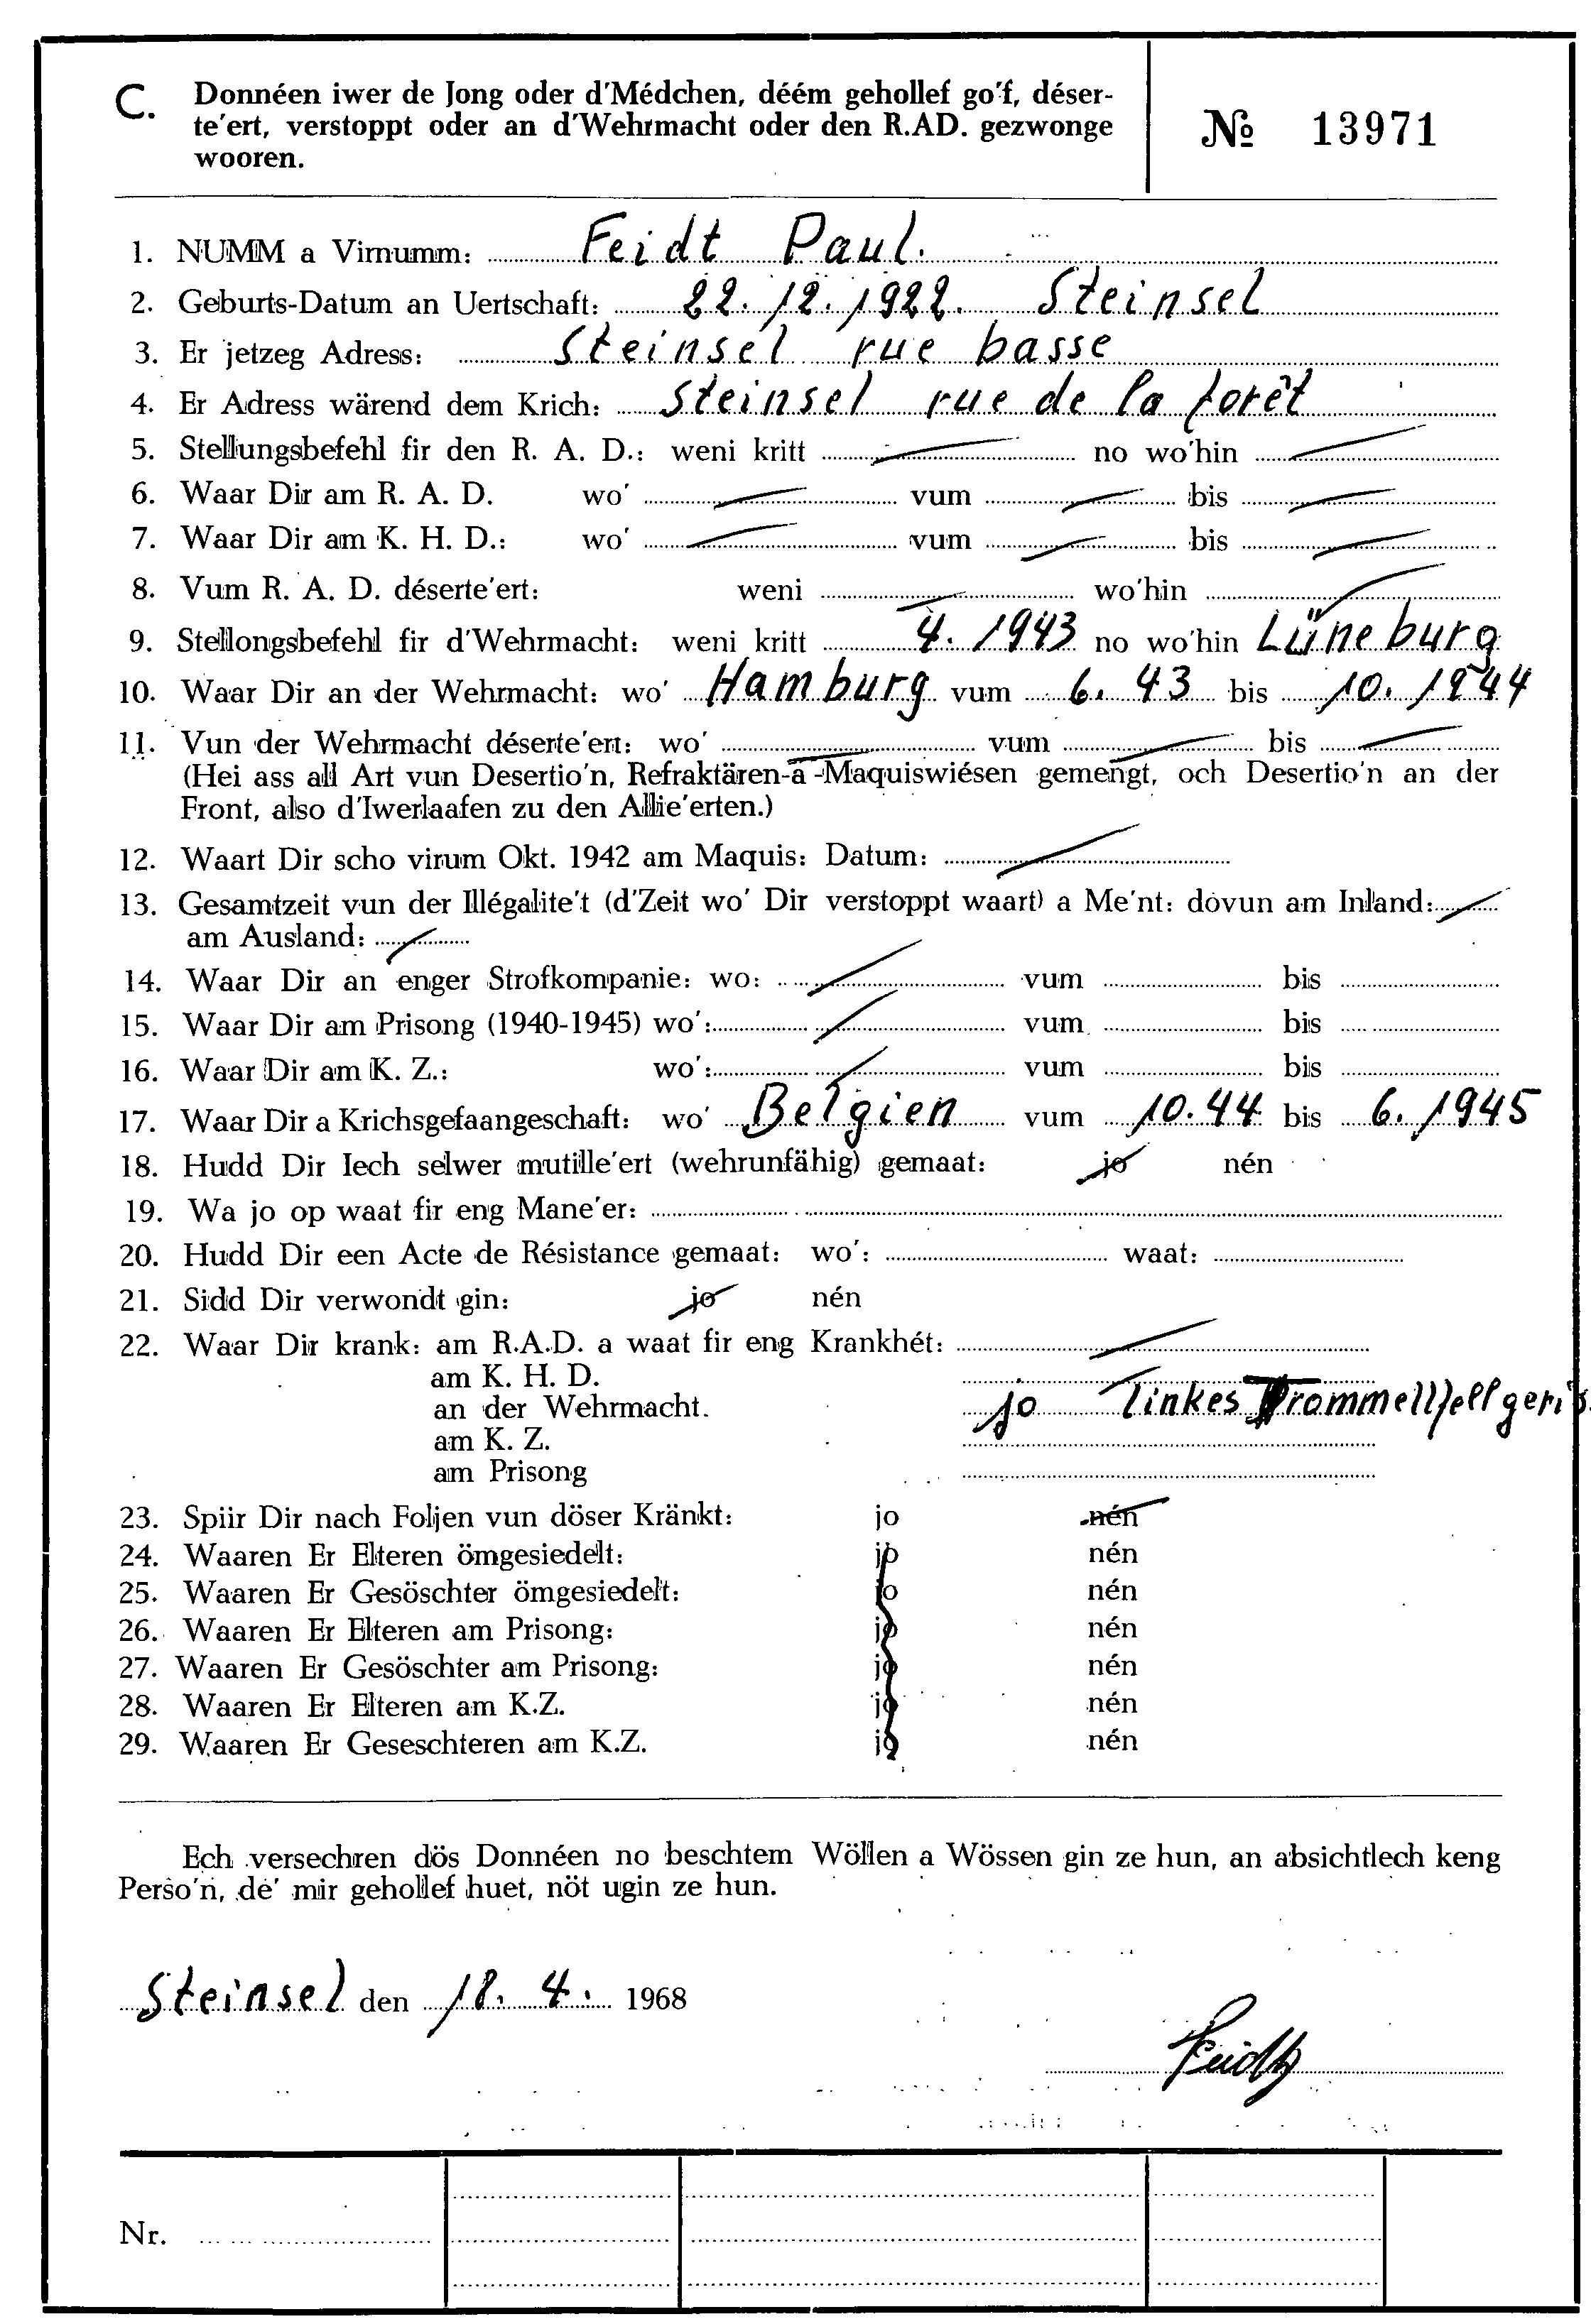 C. Donnéen iwer de Jong oder d'Médchen, déém gehollef go'f, déser-
te'ert, verstoppt oder an d'Wehrmacht oder den R.AD. gezwonge
wooren.
№ 13971
1. NUMM a Virnumm: Feidt Paul.
2. Geburts-Datum an Uertschaft: 22.12.1922. Steinsel
3. Er jetzeg Adress: Steinsel rue basse
4. Er Adress wärend dem Krich: Steinsel rue de la forêt
5. Stellungsbefehl fir den R. A. D.: weni kritt no wo'hin
6. Waar Dir am R. A. D. wo' vum bis
7. Waar Dir am K. H. D.: wo' vum bis
8. Vum R. A. D. déserte'ert: weni wo'hin
9. Stellongsbefehl fir d'Wehrmacht: weni kritt 4. 1943 no wo'hin Lüneburg
10. Waar Dir an der Wehrmacht: wo' Hamburg vum 6. 43 bis 10. 1944
11. Vun der Wehrmacht déserte'ert: wo' vum bis
(Hei ass all Art vun Desertio'n, Refraktären-a-Maquiswiésen gemengt, och Desertio'n an der
Front, also d'Iwerlaafen zu den Allie'erten.)
12. Waart Dir scho virum Okt. 1942 am Maquis: Datum:
13. Gesamtzeit vun der Illégalite't (d'Zeit wo' Dir verstoppt waart) a Me'nt: dovun am Inland:
am Ausland:
14. Waar Dir an enger Strofkompanie: wo: vum bis
15. Waar Dir am Prisong (1940-1945) wo': vum bis
16. Waar Dir am K. Z.: wo': vum bis
17. Waar Dir a Krichsgefaangeschaft: wo' Belgien vum 10.44 bis 6. 1945
18. Hudd Dir Iech selwer mutille'ert (wehrunfähig) gemaat: jo nén
19. Wa jo op waat fir eng Mane'er:
20. Hudd Dir een Acte de Résistance gemaat: wo': waat:
21. Sidd Dir verwondt gin: jo nén
22. Waar Dir krank: am R.A.D. a waat fir eng Krankhét:
am K. H. D.
an der Wehrmacht. jo linkes Trommelfell
am K. Z.
am Prisong
23. Spiir Dir nach Foljen vun döser Kränkt: jo nén
24. Waaren Er Elteren ömgesiedelt: jo nén
25. Waaren Er Gesöschter ömgesiedelt: jo nén
26. Waaren Er Elteren am Prisong: jo nén
27. Waaren Er Gesöschter am Prisong: jo nén
28. Waaren Er Elteren am K.Z. jo nén
29. Waaren Er Geseschteren am K.Z. jo nén
Ech versechren dös Donnéen no beschtem Wöllen a Wössen gin ze hun, an absichtlech keng
Perso'n, de' mir gehollef huet, nöt ugin ze hun.
Steinsel den 18. 4. 1968
Nr.